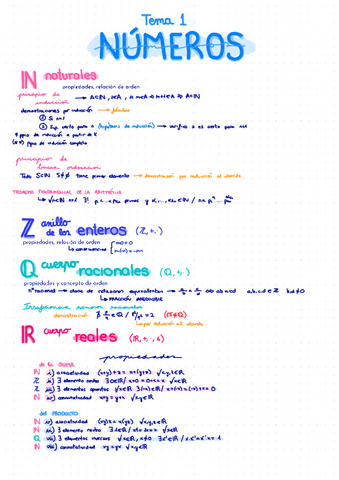 Tema 1
NÚMEROS
ℕ naturales
propiedades, relación de orden
principio de inducción → A⊂ℕ, 1∈A, n∈A ⇒ n+1∈A ⇒ A=ℕ
demostraciones por inducción
① Si n=1
② Sup. cierto para n (hipótesis de inducción) → verifica si es cierto para n+1
ppio de inducción a partir de k
ppio de inducción completa
principio de buena ordenación
Todo S⊂ℕ S≠∅ tiene primer elemento → demostración por reducción al absurdo
TEOREMA FUNDAMENTAL DE LA ARITMÉTICA
ℤ anillo de los enteros (ℤ, +, ·)
propiedades, relación de orden
↳ consecuencias
ℚ cuerpo racionales (ℚ, +, ·)
propiedades y concepto de orden
nº racional → clase de relación equivalentes
↳ FRACCIÓN IRREDUCIBLE
Insuficiencia números racionales
demostración:
↳ por reducción al absurdo
ℝ cuerpo reales (ℝ, +, ·, ≤)
propiedades
de la SUMA
ℕ i) asociatividad (x+y)+z = x+(y+z) ∀x,y,z∈ℝ
ℤ ii) ∃ elemento neutro ∃ 0∈ℝ / x+0 = 0+x = x ∀x∈ℝ
ℤ iii) ∃ elementos opuestos ∀x∈ℝ ∃(-x)∈ℝ / x+(-x) = (-x)+x = 0
ℕ iv) conmutatividad x+y = y+x ∀x,y∈ℝ
del PRODUCTO
ℕ v) asociatividad (xy)z = x(yz) ∀x,y,z∈ℝ
ℕ vi) ∃ elemento neutro ∃ 1∈ℝ / x1 = 1x = x ∀x∈ℝ
ℚ vii) ∃ elementos inversos ∀x∈ℝ, x≠0 ∃x⁻¹∈ℝ / x·x⁻¹ = x⁻¹·x = 1
ℕ viii) conmutatividad xy = yx ∀x,y∈ℝ